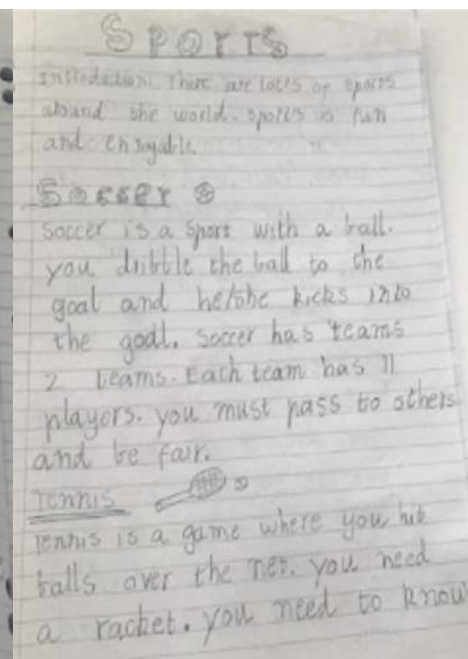 SPORTS
Introduction. There are lots of sports
around the world. sports is fun
and enjoyable.
Soccer
Soccer is a sport with a ball.
you dribble the ball to the
goal and he/she kicks into
the goal. Soccer has teams
2 teams. Each team has 11
players. you must pass to others
and be fair.
Tennis
Tennis is a game where you hit
balls over the net. you need
a racket. you need to know